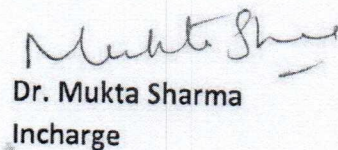 Mukta Sha
Dr. Mukta Sharma
Incharge